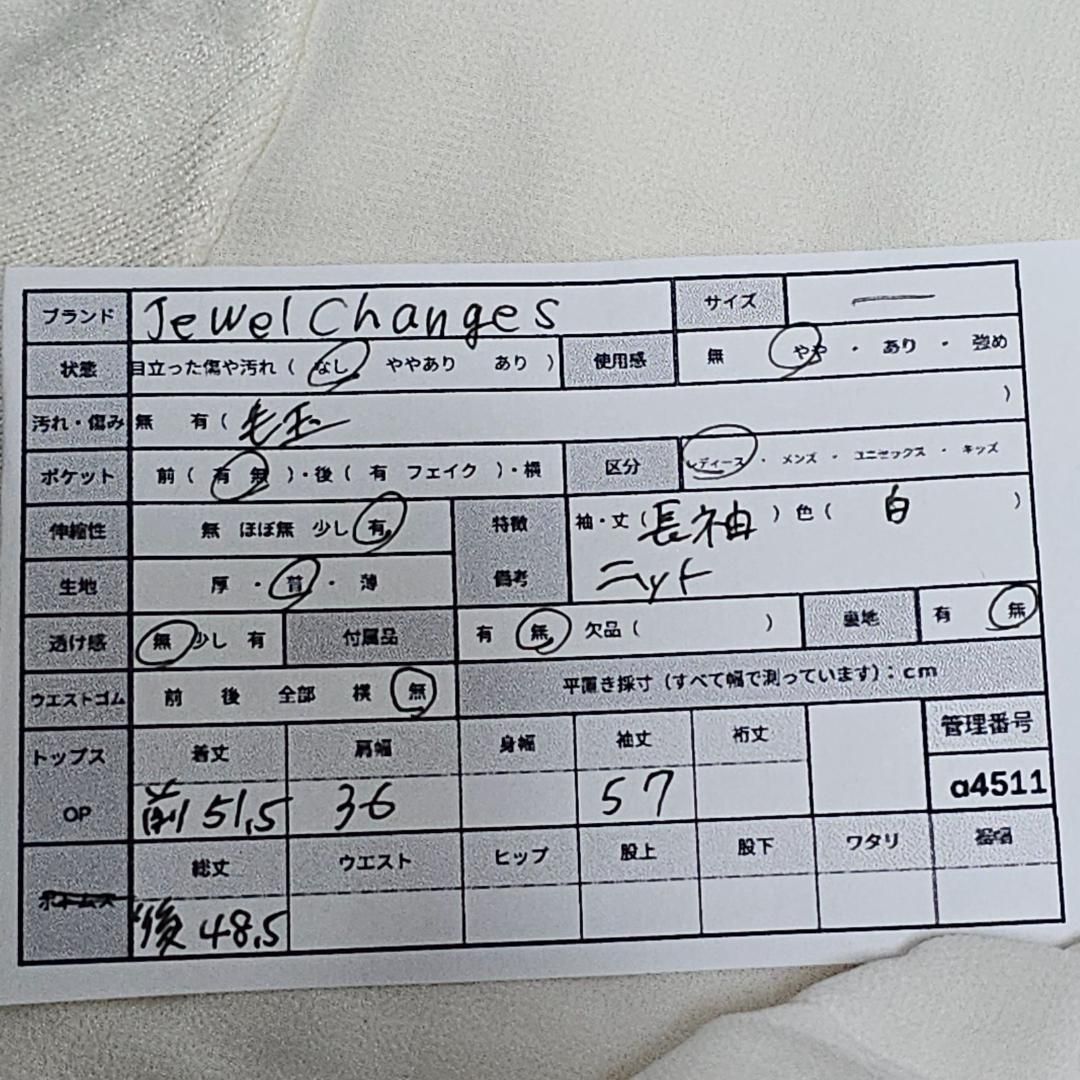 ブランド Jewel Changes サイズ ー
状態 目立った傷や汚れ ( なし ややあり あり ) 使用感 無 やや ・ あり ・ 強め
汚れ・傷み 無 有 ( 毛玉 )
ポケット 前 ( 有 無 ) ・後 ( 有 フェイク ) ・横 区分 レディース ・ メンズ ・ ユニセックス ・ キッズ
伸縮性 無 ほぼ無 少し 有 特徴 袖・丈 ( 長袖 ) 色 ( 白 )
生地 厚 ・ 普 ・ 薄 備考 ニット
透け感 無 少し 有 付属品 有 無 欠品 ( ) 裏地 有 無
ウエストゴム 前 後 全部 横 無 平置き採寸 (すべて幅で測っています) : cm
トップス 着丈 肩幅 身幅 袖丈 裄丈 管理番号
OP 前 51.5 36 57 a4511
総丈 ウエスト ヒップ 股上 股下 ワタリ 裾幅
ボトムス 後 48.5